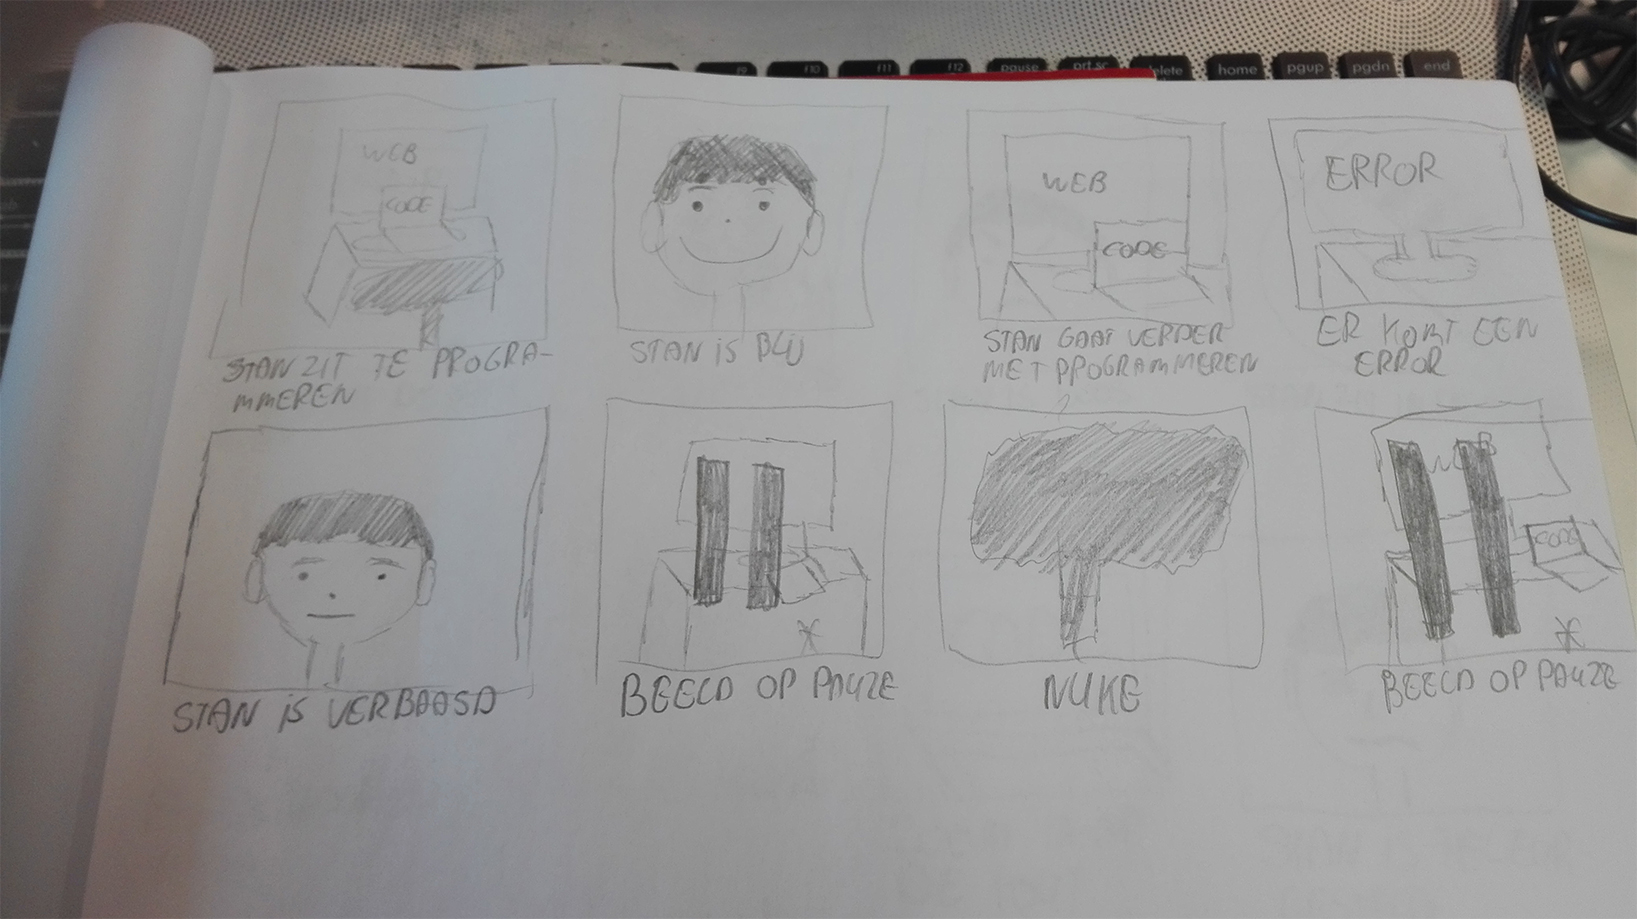 f9 f10 f11 f12 pause prt sc delete home pgup pgdn end
WEB
CODE
STAN ZIT TE PROGRA-
MMEREN
STAN iS BLIJ
WEB
CODE
STAN GAAT VERDER
MET PROGRAMMEREN
ERROR
ER KOMT EEN
ERROR
STAN iS VERBAASD
BEELD OP PAUZE
NUKE
WEB
CODE
BEELD OP PAUZE